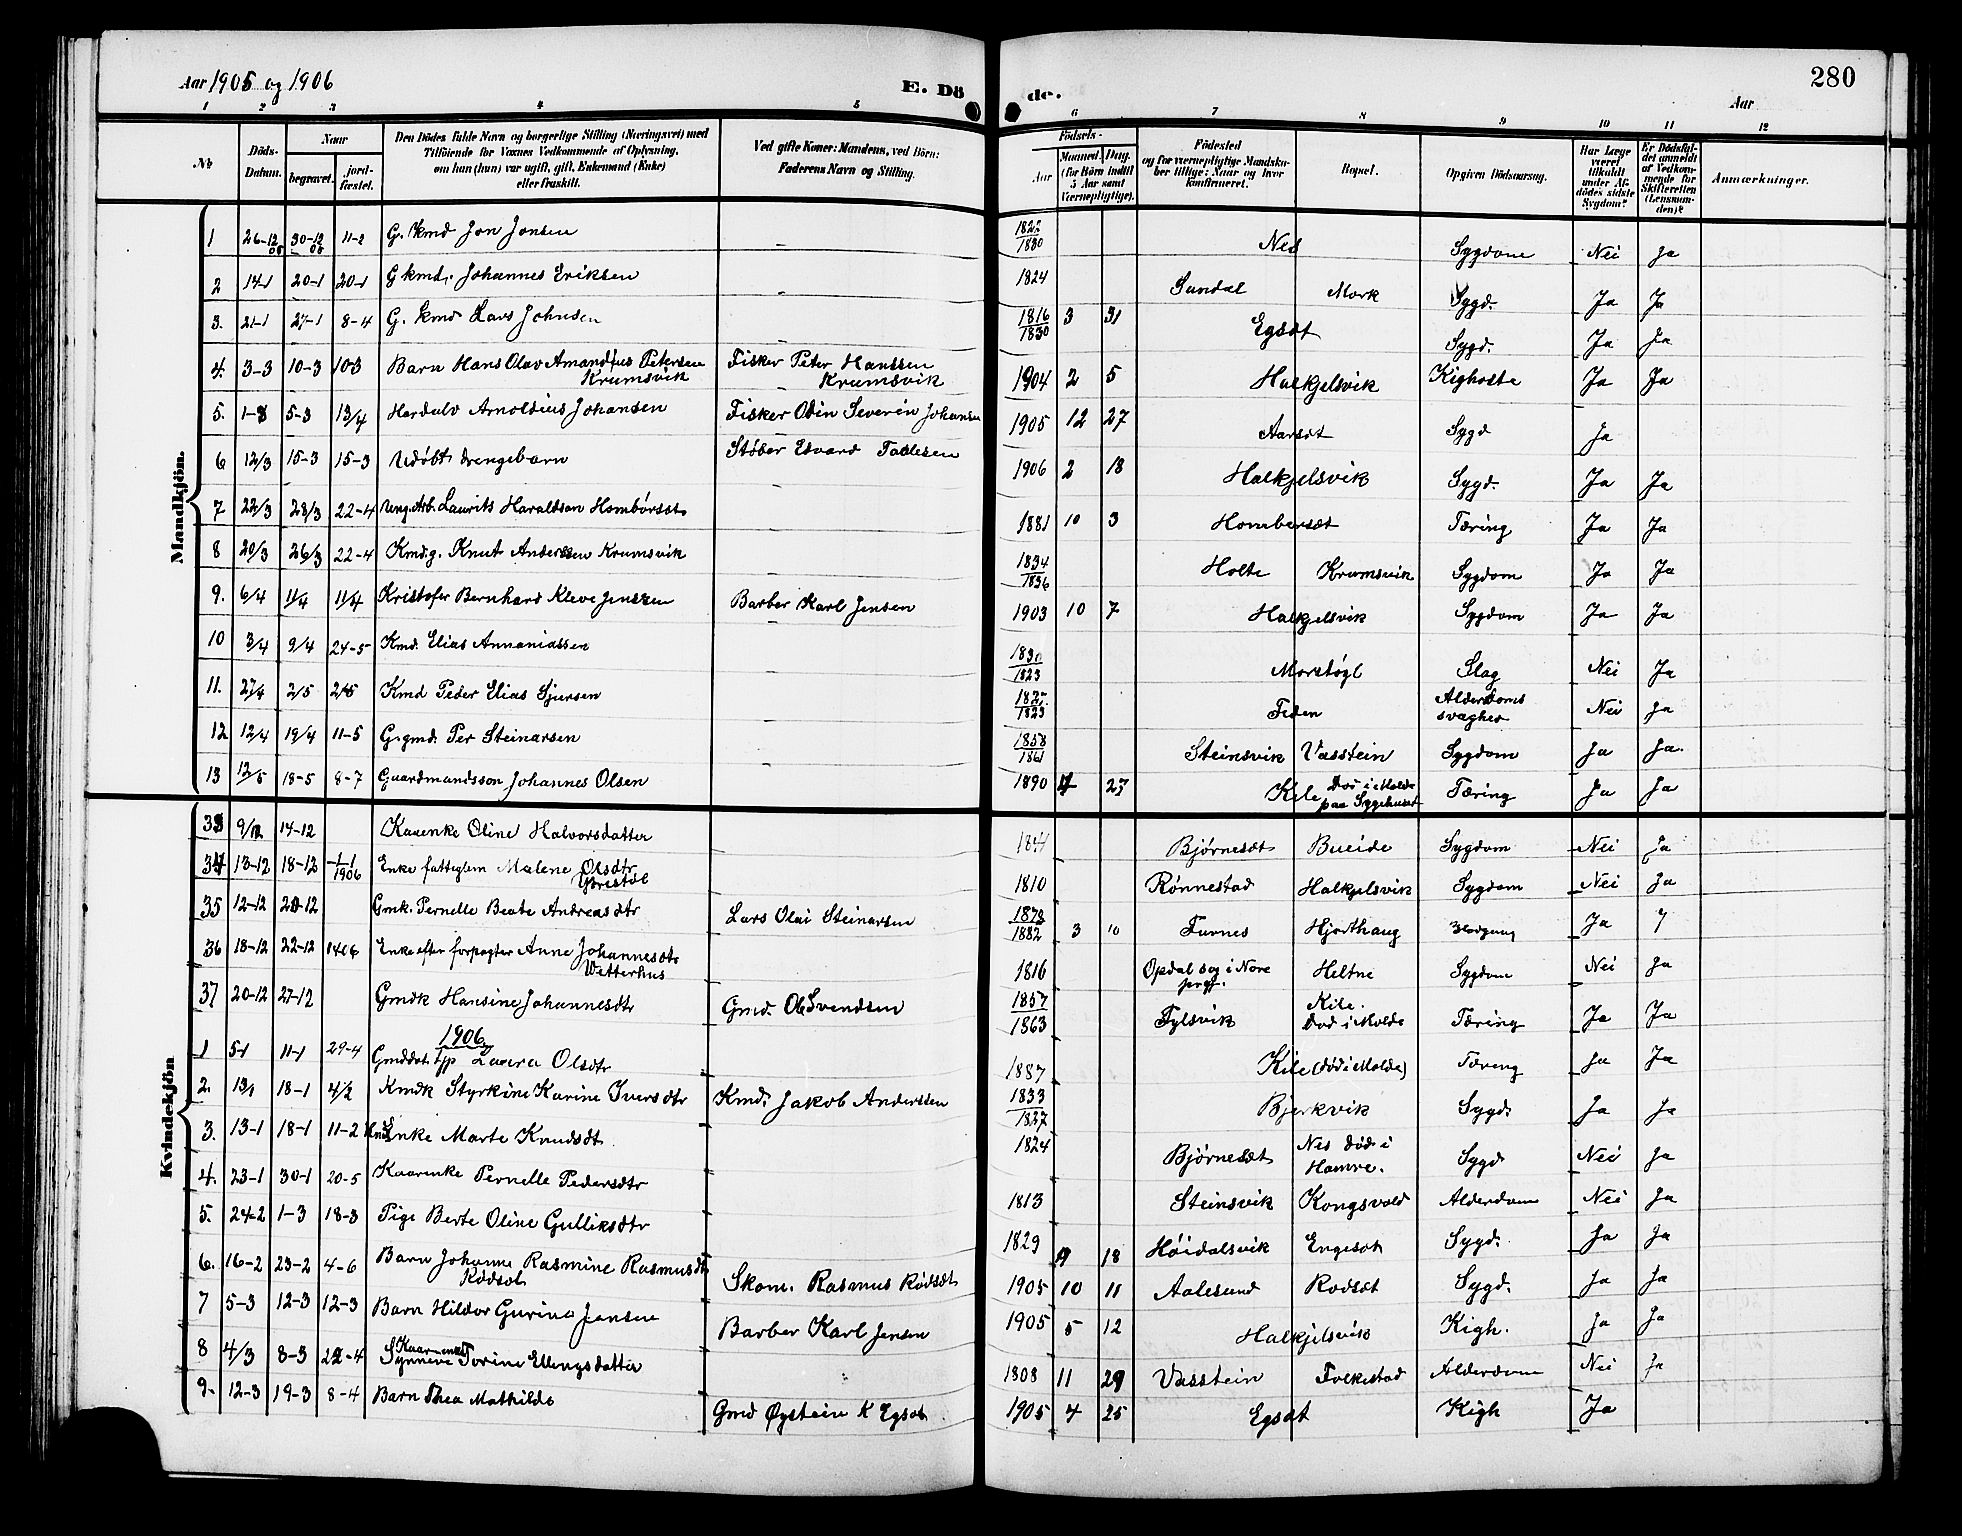 Aar 1905 og 1906
E. Dö de.
280
Aar
1 2 3 4 5 6 7 8 9 10 11 12
No
Döds-Datum.
Naar
begravet.
jordfæstet.
Den Dödes fulde Navn og borgerlige Stilling (Næringsvei) med
Tilföiende for Voxnes Vedkommende af Oplysning,
om han (hun) var ugift, gift, Enkemand (Enke)
eller fraskilt.
Ved gifte Koner: Mandens, ved Börn:
Faderens Navn og Stilling.
Födsels-
Aar
Maaned. Dag.
(for Börn indtil
5 Aar samt
Værnepligtige).
Födested
og for værnepligtige Mandska-
ber tillige: Naar og hvor
konfirmeret.
Bopæl.
Opgiven Dödsaarsag.
Har Læge
været
tilkaldt
under Af-
dödes sidste
Sygdom?
Er Dödsfal-
det anmeldt
af Vedkom-
mende for
Skifteretten
(Lensman-
den)?
Anmærkninger.
Mandkjön.
1 26-12 05 30-12 05 11-2 G. kmd Jon Jonsen 1822/1830 Nes Sygdom Nei Ja
2 14-1 20-1 20-1 G kmd. Johannes Eriksen 1824 Sundal Mork Sygd. Ja Ja
3. 21-1 27-1 8-4 G. kmd Lars Johnsen 1816/1830 3 31 Egsæt Sygd. Ja Ja
4. 3-3 10-3 10-3 Barn Hans Olav Amandius Petersen Krumsvik Fisker Peter Hanssen Krumsvik 1904 2 5 Halkjelsvik Kighoste Ja Ja
5. 1-3 5-3 13/4 Hardulv Arnoldius Johansen Fisker Odin Severin Johansen 1905 12 27 Aarsæt Sygd Ja
6 12/3 15-3 15-3 Udöbt drengebarn Støber Edvard Tadlesen 1906 2 18 Halkjelsvik Sygd. Ja Ja
7 22/3 28/3 22-4 Ung. Arb. Laurits Haraldson Hombørset 1881 10 3 Homborset Tæring Ja Ja
8 20/3 26/3 22-4 Kmd.g. Knut Anderssen Krumsvik 1834/1836 Holte Krumsvik Sygdom Ja Ja
9. 6/4 11/4 11/4 Kristofer Bernhard Kleve Jenssen Barber Karl Jensen 1903 10 7 Halkjelsvik Sygdom Ja Ja
10 3/4 9/4 24-5 Kmd. Elias Annaniassen 1830/1823 Morstøyl Slag Nei Ja
11. 27/4 2/5 Kmd Peder Elias Sjursen Feden Alderdoms svaghed Nei Ja
12 12/4 19/4 11-5 G. gmd. Per Steinarsen 1858/1861 Steinsvik Vasstein Sygdom Ja Ja.
13 12/5 18-5 8-7 Gaardmandsson Johannes Olsen 1890 4 Kile Død i Molde paa Sygehuset Tæring Ja Ja
Kvindekjön
33 9/12 14-12 Kaarenke Oline Halvorsdatter Bjørneset Bueide Sygdom Nei Ja
34 13-12 18-12 1-1 1906 Enke fattiglem Malene Olsdtr 1810 Rönnestad Halkjelsvik Sygdom Nei Ja
35 12-12 20-12 Gmk. Pernelle Beate Andreasdtr Lars Olai Steinarsen 1878/1882 3 10 Furnes Hjorthaug Ja
36 18-12 22-12 Enke efter forpagter Anne Johannesdtr Vatterhus 1816 Opdal sog i Nore prgj. Heltne Sygdom Nei Ja
37 20-12 27-12 Gmdk Hansine Johannesdtr Gmd. Ole Svendsen 1857/1863 Fylsvik Kile. Død i Molde Tæring Ja Ja
1906
1 5-1 11-1 29-4 Gmddat. Laura Olsdtr 1887 Kile (død i Molde) Tæring Ja Ja
2. 13/1 18-1 4/2 Kmdk Styrkine Karine Iversdtr Kmd. Jakob Anderssen 1833/1837 Bjerkvik Sygd. Ja Ja
3. 13-1 18-1 11-2 Enke Marte Knudsdtr 1824 Bjørneset Nes død i Hamre. Sygd Nei Ja
4. 23-1 30-1 20-5 Kaarenke Pernelle Pedersdtr 1813 Steinsvik Kongsvold Alderdom Nei Ja
5. 24-2 1-3 18-3 Pige Berte Oline Gulliksdtr 1829 9 18 Høidalsvik Engeset Sygd. Ja Ja
6. 16-2 23-2 4-6 Barn Johanne Rasmine Rasmusdtr Rødset Skom. Rasmus Rødset 1905 10 11 Aalesund Rødset Sygd. Ja Ja
7 5-3 12-3 12-3 Barn Hildor Gurina Jensen Barber Karl Jensen 1905 5 12 Halkjelsvik Kigh. Ja Ja
8 4/3 8-3 22-4 Kaarenke Synneve Torine Ellingsdatter 1808 11 29 Vasstein Folkestad Alderdom Nei Ja
9. 12-3 19-3 8-4 Barn Thea Mathilde Gmd Øystein K Egset 1905 4 25 Egset Kigh Ja